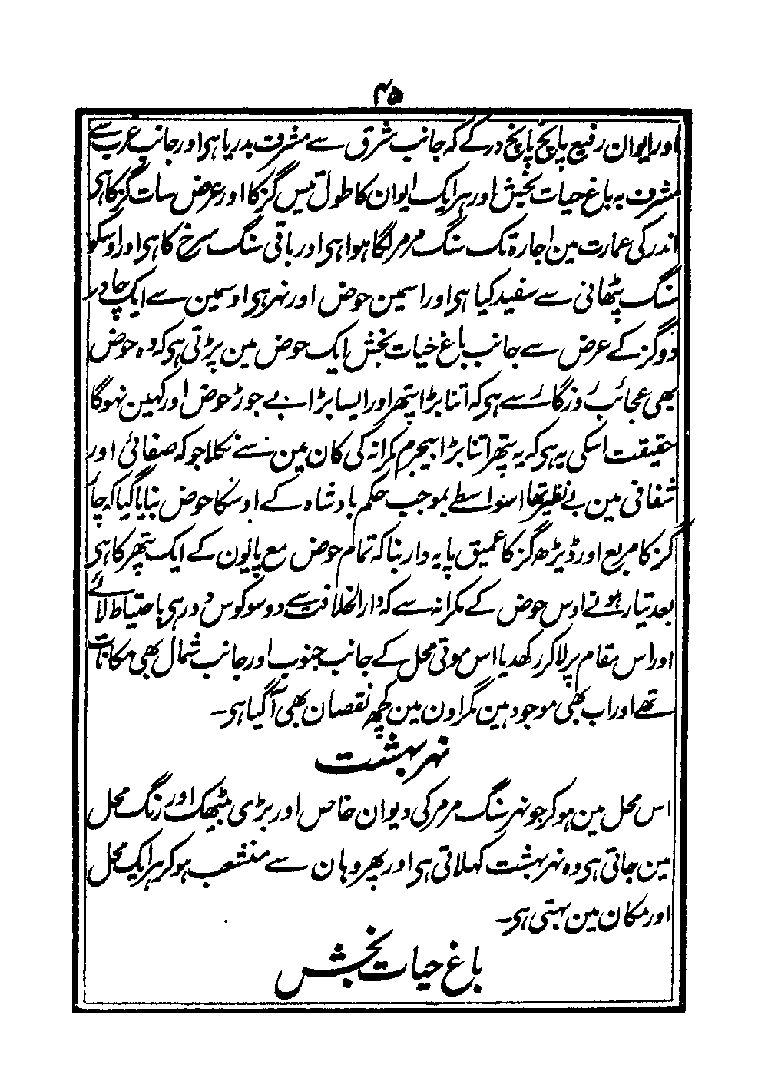 ۴۵
اور ایوان رفیع پانچ پانچ در کے کہ جانب شرق سے مشرف بدریا ہی اور جانب غرب سے
مشرف بہ باغ حیات بخش اور ہر ایک ایوان کا طول تیس گز کا اور عرض سات گز کا ہی
اندر کی عمارت مین اجارہ تک سنگ مرمر لگا ہوا ہی اور باقی سنگ سرخ کا ہی اور اوسکو
سنگ پٹھانی سے سفید کیا ہی اور اسمین حوض اور نہر ہی اوسمین سے ایک چادر
دو گز کے عرض سے جانب باغ حیات بخش ایک حوض مین پڑتی ہی کہ وہ حوض
بھی عجائب روزگار سے ہی کہ اتنا بڑا پتھر اور ایسا بڑا بے جوڑ حوض اور کہین نہوگا
حقیقت اسکی یہ ہی کہ یہ پتھر اتنا بڑا بیجرم مکرانہ کی کان مین سے نکلا جو کہ صفائی اور
شفافی مین بے نظیر تھا اسواسطے بموجب حکم بادشاہ کے اوسکا حوض بنایا گیا کہ چار
گز کا مربع اور ڈیڑھ گز کا عمیق پایہ دار بنا کہ تمام حوض مع پایون کے ایک پتھر کا ہی
بعد تیار ہونے اوس حوض کے مکرانہ سے کہ دارالخلافت سے دو سو کوس دور ہی با حتیاط لائے
اور اس مقام پر لا کر رکھدیا اس موتی محل کے جانب جنوب اور جانب شمال بھی مکانات
تھے اور اب بھی موجود ہین مگر اون مین کچھ نقصان بھی آگیا ہی۔
نہر بہشت
اس محل مین ہو کر جو نہر سنگ مرمر کی دیوان خاص اور بڑی بیٹھک اور رنگ محل
مین جاتی ہی وہ نہر بہشت کہلاتی ہی اور پھر وہان سے منشعب ہو کر ہر ایک محل
اور مکان مین بہتی ہی۔
باغ حیات بخش